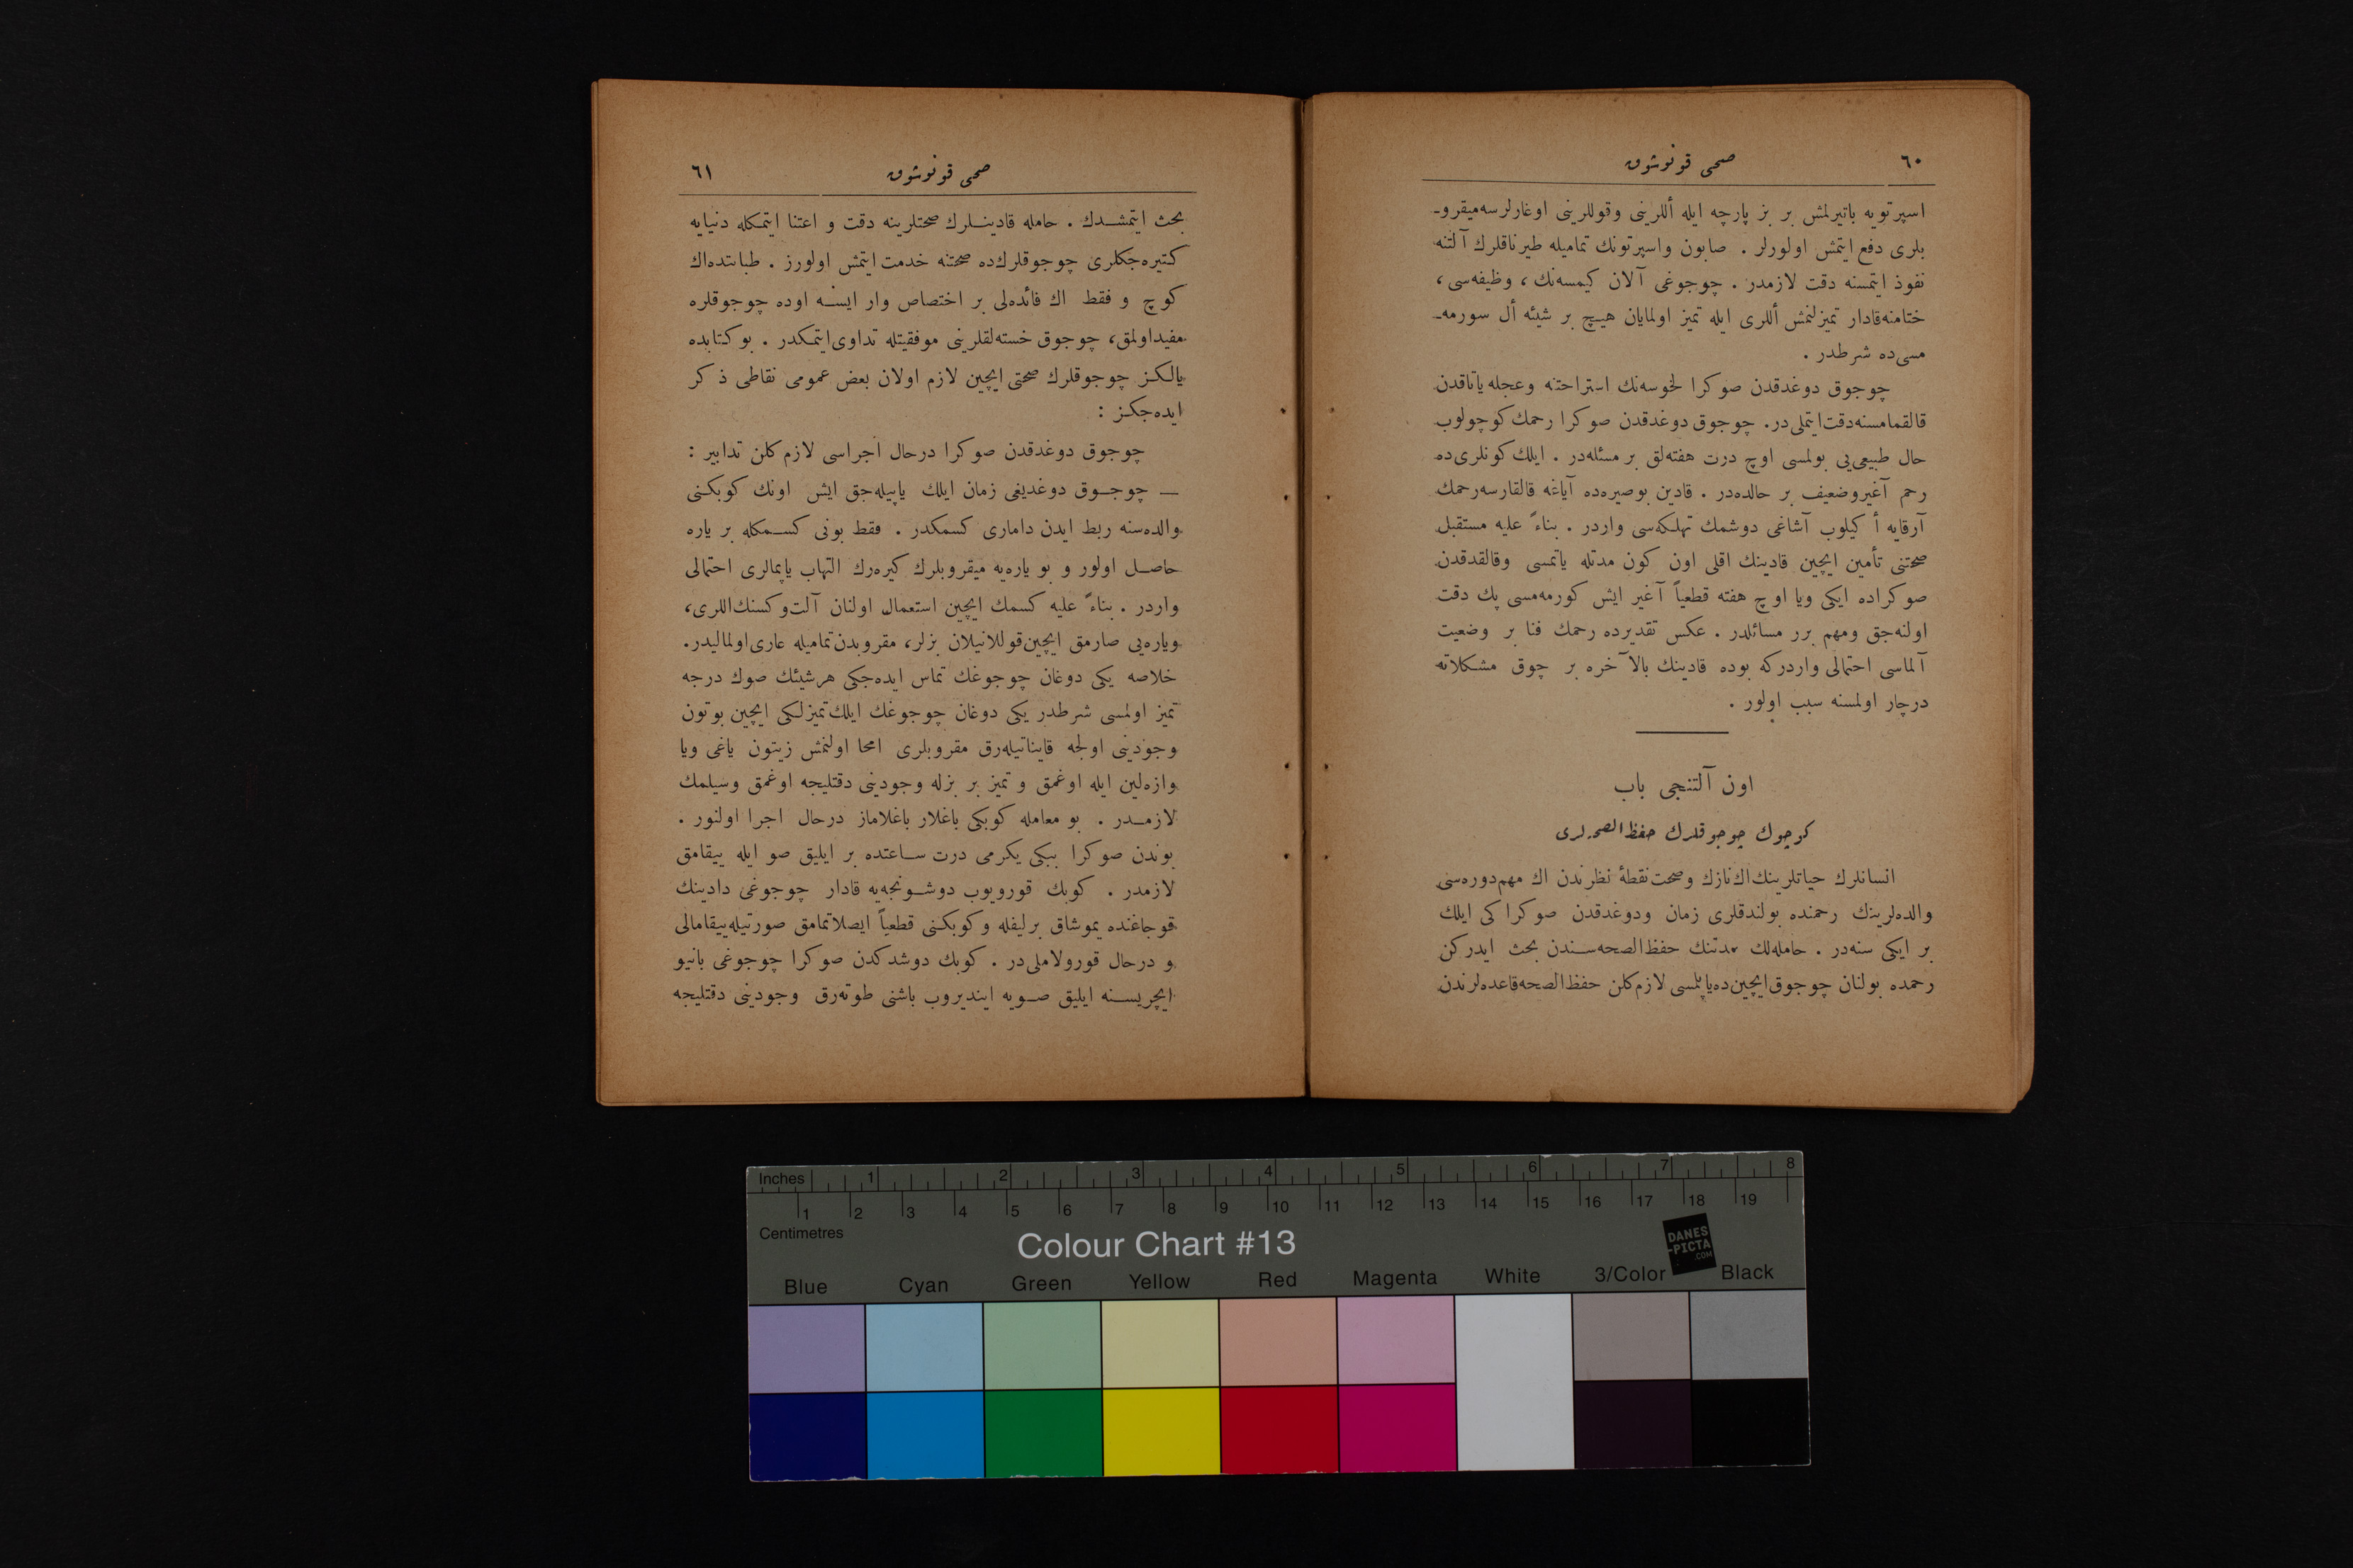 ٦٠
صحی قونوشوق
اسپرتویه باتیرلمش بر بز پارچه ایله أللرینی وقوللرینی اوغارلرسه میقرو-
بلری دفع ایتمش اولورلر . صابون واسپرتونك تمامیله طیرناقلرك آلتنه
نفوذ ایتمسنه دقت لازمدر . چوجوغی آلان کیمسه‌نك ، وظیفه‌سی ،
ختامنه قادار تمیزلنمش أللری ایله تمیز اولمایان هیچ بر شیئه أل سورمه-
مسی ده شرطدر .
چوجوق دوغدقدن صوکرا لخوسه‌نك استراحتنه وعجله یاتاقدن
قالقمامسنه دقت ایتملی‌در. چوجوق دوغدقدن صوکرا رحمك کوچولوب
حال طبیعی‌یی بولمسی اوچ درت هفته‌لق بر مسئله‌در . ایلك کونلری‌ده
رحم آغیر وضعیف بر حالده‌در . قادین بوصیره‌ده آیاغه قالقارسه رحمك
آرقایه أ کیلوب آشاغی دوشمك تهلکه‌سی واردر . بناءً علیه مستقبل
صحتنی تأمین ایچین قادینك اقلی اون کون مدتله یاتمسی وقالقدقدن
صوکراده ایکی ویا اوچ هفته قطعیاً آغیر ایش کورمه‌مسی پك دقت
اولنه‌جق ومهم برر مسائلدر . عکس تقدیرده رحمك فنا بر وضعیت
آلماسی احتمالی واردرکه بوده قادینك بالآخره بر چوق مشکلاته
درچار اولمسنه سبب اولور .
اون آلتنجی باب
کوچوك چوجوقلرك حفظ الصحه‌لری
انسانلرك حیاتلرینك اك نازك وصحت نقطهٔ نظرندن اك مهم دوره‌سی
والده‌لرینك رحمنده بولندقلری زمان ودوغدقدن صوکراکی ایلك
بر ایکی سنه‌در . حامله‌لك مدتنك حفظ الصحه‌سندن بحث ایدرکن
رحمده بولنان چوجوق ایچین‌ده یاپلمسی لازم کلن حفظ الصحه قاعده‌لرندن
صحی قونوشوق
٦١
بحث ایتمشدك . حامله قادینلرك صحتلرینه دقت و اعتنا ایتمکله دنیایه
کتیره‌جکلری چوجوقلرك‌ده صحتنه خدمت ایتمش اولورز . طبابتده اك
کوچ و فقط اك فائده‌لی بر اختصاص وار ایسه اوده چوجوقلره
مفید اولمق، چوجوق خسته‌لقلرینی موفقیتله تداوی ایتمکدر . بو کتابده
یالکز چوجوقلرك صحتی ایچین لازم اولان بعض عمومی نقاطی ذکر
ایده‌جکز :
چوجوق دوغدقدن صوکرا درحال اجراسی لازم کلن تدابیر :
— چوجوق دوغدیغی زمان ایلك یاپیله‌جق ایش اونك کوبکنی
والده‌سنه ربط ایدن داماری کسمکدر . فقط بونی کسمکله بر یاره
حاصل اولور و بو یاره‌یه میقروبلرك کیره‌رك التهاب یاپمالری احتمالی
واردر . بناءً علیه کسمك ایچین استعمال اولنان آلت وکسنك اللری،
ویاره‌یی صارمق ایچین قوللانیلان بزلر، مقروبدن تمامیله عاری اولمالیدر.
خلاصه یکی دوغان چوجوغك تماس ایده‌جکی هر شیئك صوك درجه
تمیز اولمسی شرطدر یکی دوغان چوجوغك ایلك تمیزلکی ایچین بوتون
وجودینی اولجه قایناتیله‌رق مقروبلری امحا اولنمش زیتون یاغی ویا
وازه‌لین ایله اوغمق و تمیز بر بزله وجودینی دقتلیجه اوغمق وسیلمك
لازمدر . بو معامله کوبکی باغلار باغلاماز درحال اجرا اولنور .
بوندن صوکرا ببکی یکرمی درت ساعتده بر ایلیق صو ایله ییقامق
لازمدر . کوبك قورویوب دوشونجه‌یه قادار چوجوغی دادینك
قوجاغنده یموشاق بر لیفله وکوبکنی قطعیاً ایصلاتمامق صورتیله ییقامالی
و درحال قورولاملی‌در . کوبك دوشدکدن صوکرا چوجوغی بانیو
ایچریسنه ایلیق صویه ایندیروب باشنی طوته‌رق وجودینی دقتلیجه
Inches 1 2 3 4 5 6 7 8
1 2 3 4 5 6 7 8 9 10 11 12 13 14 15 16 17 18 19
Centimetres
Colour Chart #13
DANES
-PICTA
.COM
Blue Cyan Green Yellow Red Magenta White 3/Color Black